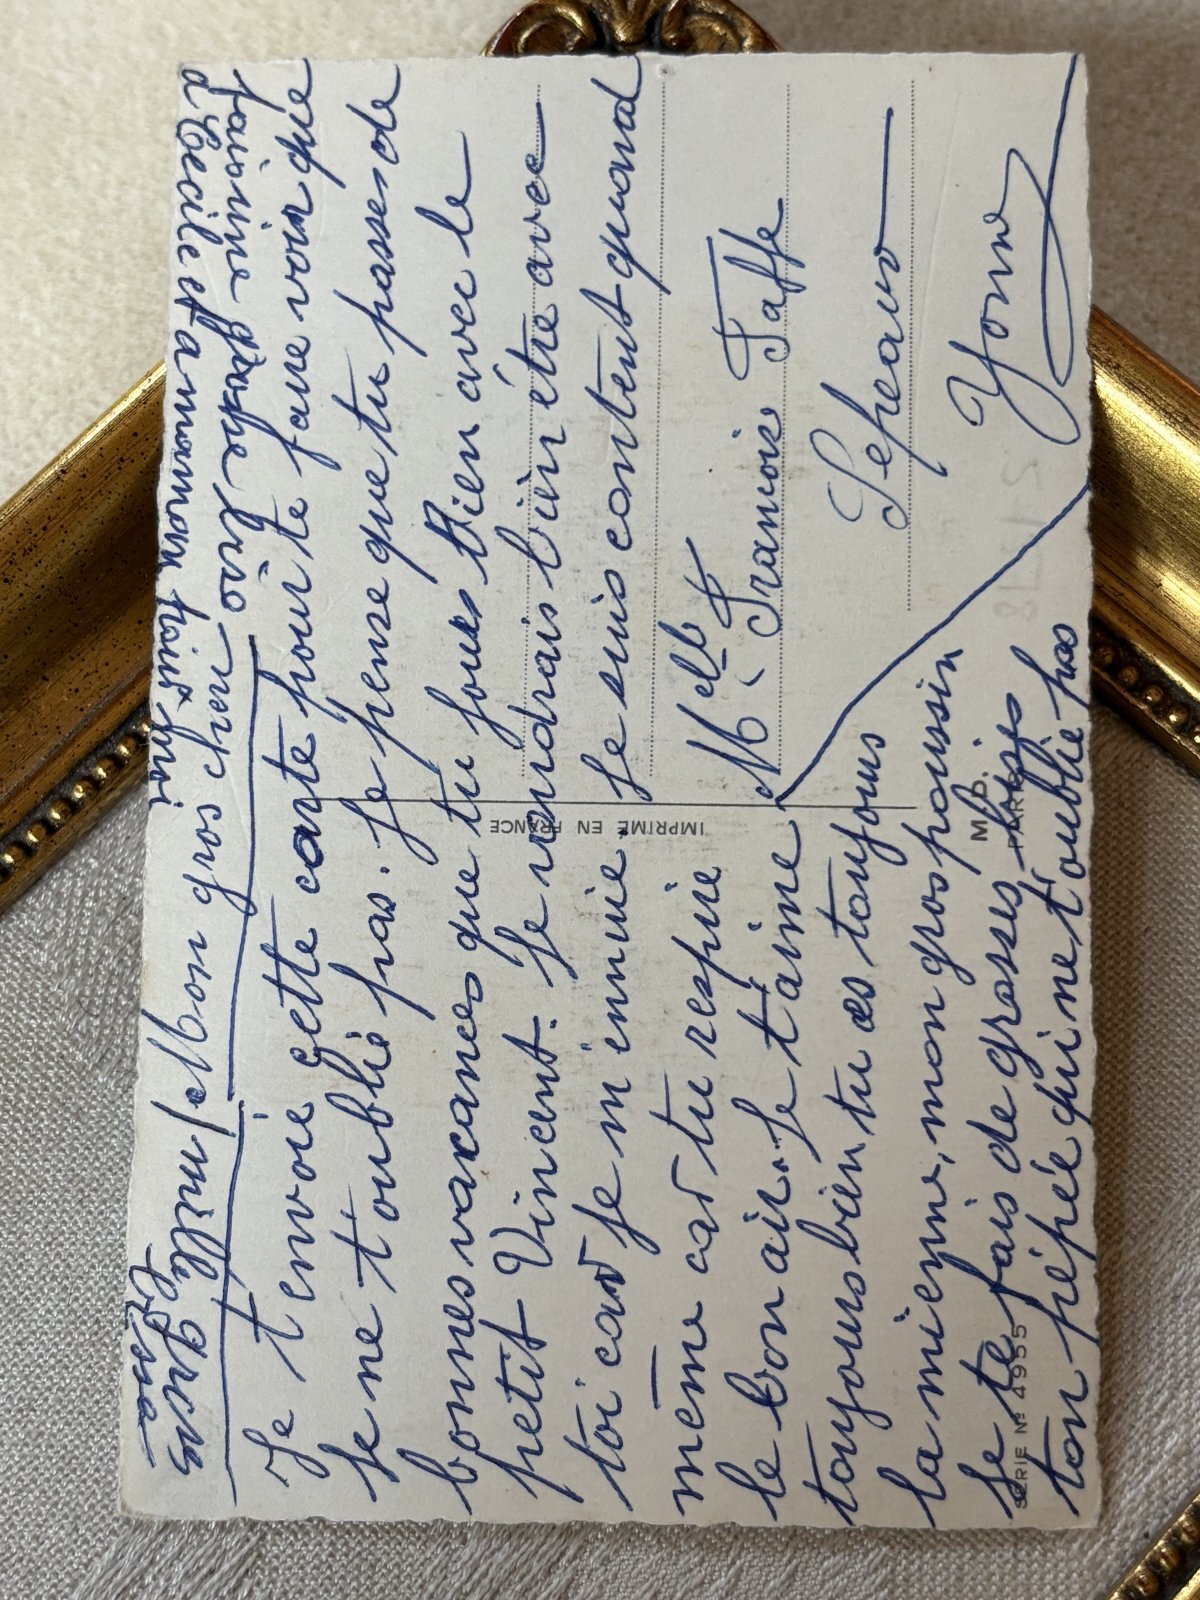 Mon gros cheri
Je t'envoie cette carte pour te faire voir que
je ne t'oublie pas. Je pense que tu passes de
bonnes vacances que tu joues bien avec le
petit Vincent. Je voudrais bien être avec
toi car je m'ennuie. Je suis content quand
même car tu respire
le bon air. Je t'aime
toujours bien, tu es toujours
la mienne, mon gros poussin
Je te fais de grosses bises
ton pépée qui ne t'oublie pas
Melle
Francoise Taffe
Sepeaux
Yonne
mille gros
à Cécile et a maman pour moi
IMPRIME EN FRANCE
M.D.
PARIS
SERIE No 4955